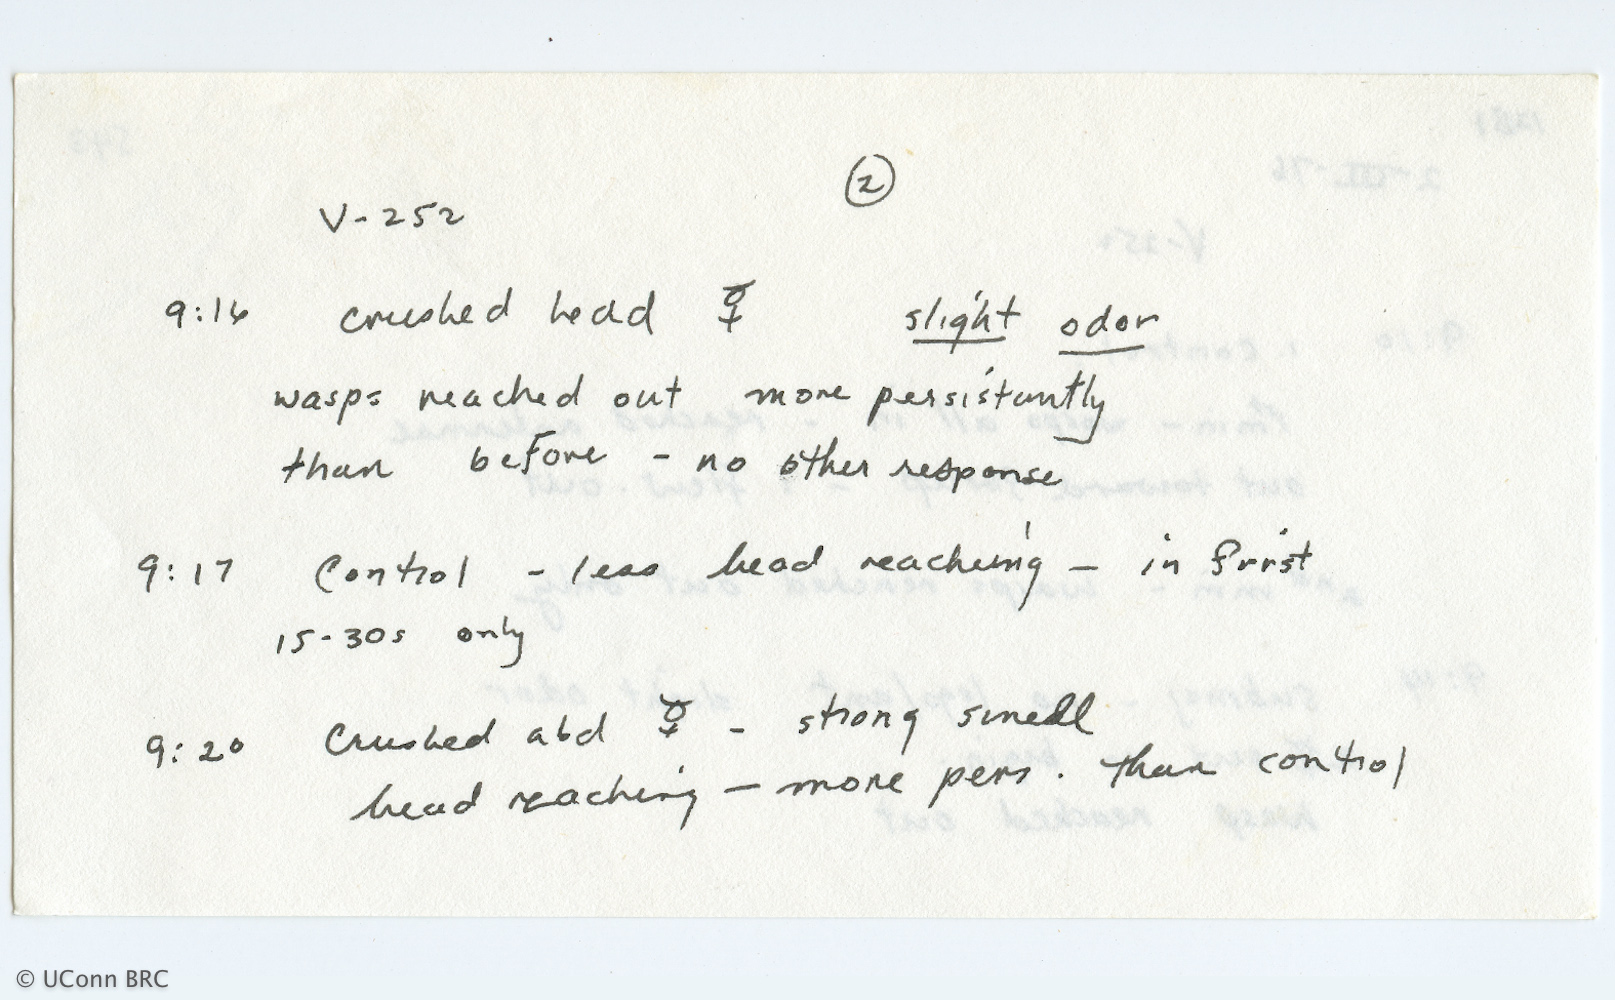 ②
V-252
9:16 crushed head ☿ slight odor
wasps reached out more persistantly
than before - no other response
9:17 Control - less head reaching - in first
15-30s only
9:20 Crushed abd ☿ - strong smell
head reaching - more pers. than control
© UConn BRC